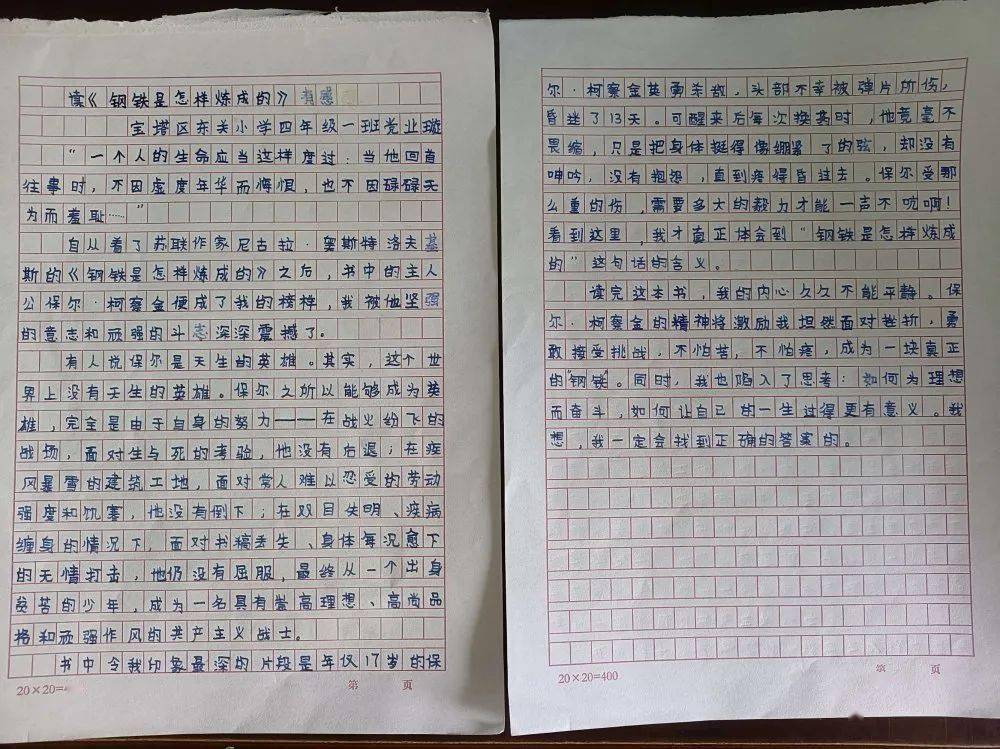 读《钢铁是怎样炼成的》有感
宝塔区东关小学四年级一班党业璇
“一个人的生命应当这样度过：当他回首
往事时，不因虚度年华而悔恨，也不因碌碌无
为而羞耻……”
自从看了苏联作家尼古拉·奥斯特洛夫基
斯的《钢铁是怎样炼成的》之后，书中的主人
公保尔·柯察金便成了我的榜样，我被他坚强
的意志和顽强的斗志深深震撼了。
有人说保尔是天生的英雄。其实，这个世
界上没有天生的英雄。保尔之所以能够成为英
雄，完全是由于自身的努力——在战火纷飞的
战场，面对生与死的考验，他没有后退；在疾
风暴雪的建筑工地，面对常人难以忍受的劳动
强度和饥寒，他没有倒下；在双目失明、疾病
缠身的情况下，面对书稿丢失、身体每况愈下
的无情打击，他仍没有屈服，最终从一个出身
贫苦的少年，成为一名具有崇高理想、高尚品
格和顽强作风的共产主义战士。
书中令我印象最深的片段是年仅17岁的保
20×20=4
第 页
尔·柯察金英勇杀敌，头部不幸被弹片所伤，
昏迷了13天。可醒来后每次换药时，他竟毫不
畏缩，只是把身体挺得像绷紧了的弦，却没有
呻吟，没有抱怨，直到疼得昏过去。保尔受那
么重的伤，需要多大的毅力才能一声不吭啊！
看到这里，我才真正体会到“钢铁是怎样炼成
的”这句话的含义。
读完这本书，我的内心久久不能平静。保
尔·柯察金的精神将激励我坦然面对挫折，勇
敢接受挑战，不怕苦，不怕疼，成为一块真正
的“钢铁”。同时，我也陷入了思考：如何为理想
而奋斗，如何让自己的一生过得更有意义。我
想，我一定会找到正确的答案的。
20×20=400
第 页